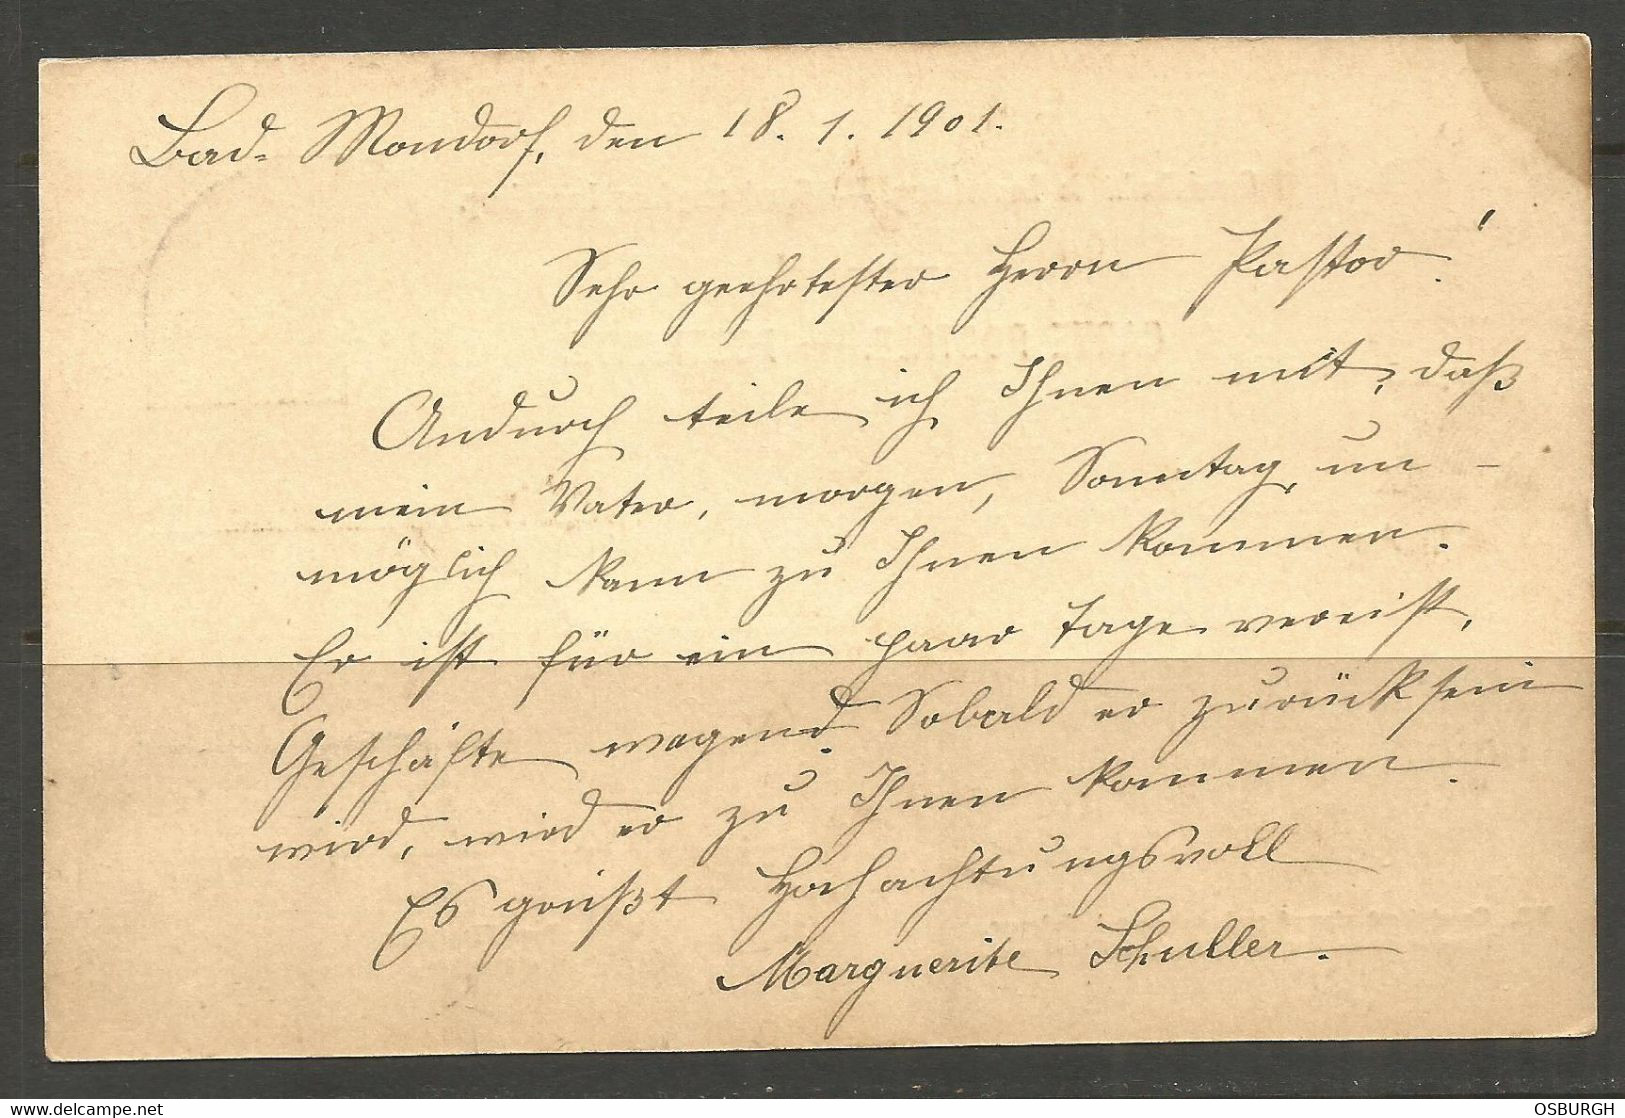 Bad-Mondorf, den 18. 1. 1901.
Sehr geehrtester Herrn Pastor!
Andurch teile ich Ihnen mit, daß
mein Vater, morgen, Sonntag, un-
möglich kann zu Ihnen kommen.
Er ist für ein paar Tage verreist,
Geschäfte wegend. Sobald er zurück sein
wird, wird er zu Ihnen kommen.
Es grüßt Hochachtungsvoll
Marguerite Schuller.
www.delcampe.net
OSBURGH